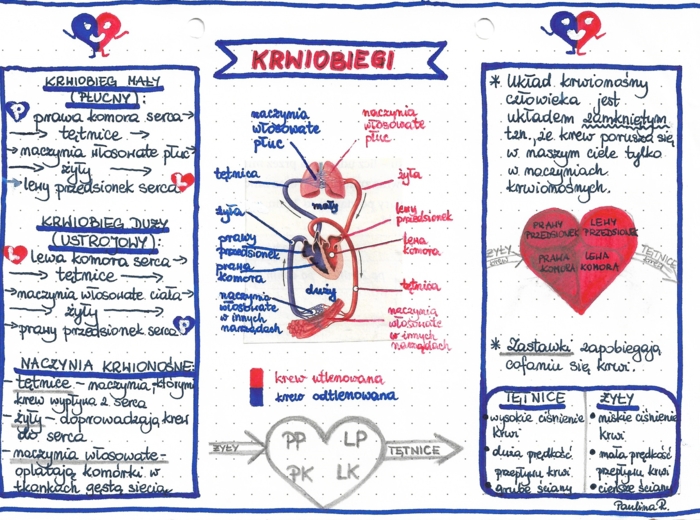 KRWIOBIEG MAŁY
(PŁUCNY):
P prawa komora serca →
→ tętnice →
→ naczynia włosowate płuc
→ żyły →
→ lewy przedsionek serca L
KRWIOBIEG DUŻY
(USTROJOWY):
L lewa komora serca →
→ tętnice →
→ naczynia włosowate ciała →
→ żyły →
→ prawy przedsionek serca P
NACZYNIA KRWIONOŚNE:
- tętnice - naczynia, którymi
krew wypływa z serca
- żyły - doprowadzają krew
do serca
- naczynia włosowate -
oplatają komórki w
tkankach gęstą siecią
KRWIOBIEGI
naczynia
włosowate
płuc
naczynia
włosowate
płuc
tętnica
żyła
prawy
przedsionek
prawa
komora
naczynia
włosowate
w innych
narządach
mały
duży
żyła
lewy
przedsionek
lewa
komora
tętnica
naczynia
włosowate
w innych
narządach
krew utlenowana
krew odtlenowana
ŻYŁY
PP LP
PK LK
TĘTNICE
* Układ krwionośny
człowieka jest
układem zamkniętym
tzn., że krew porusza się
w naszym ciele tylko
w naczyniach
krwionośnych.
PRAWY
PRZEDSIONEK
LEWY
PRZEDSIONEK
PRAWA
KOMORA
LEWA
KOMORA
ŻYŁY
KREW
TĘTNICE
KREW
* Zastawki zapobiegają
cofaniu się krwi.
TĘTNICE
• wysokie ciśnienie
krwi
• duża prędkość
przepływu krwi
• grube ściany
ŻYŁY
• niskie ciśnienie
krwi
• mała prędkość
przepływu krwi
• cieńsze ściany
Paulina R.